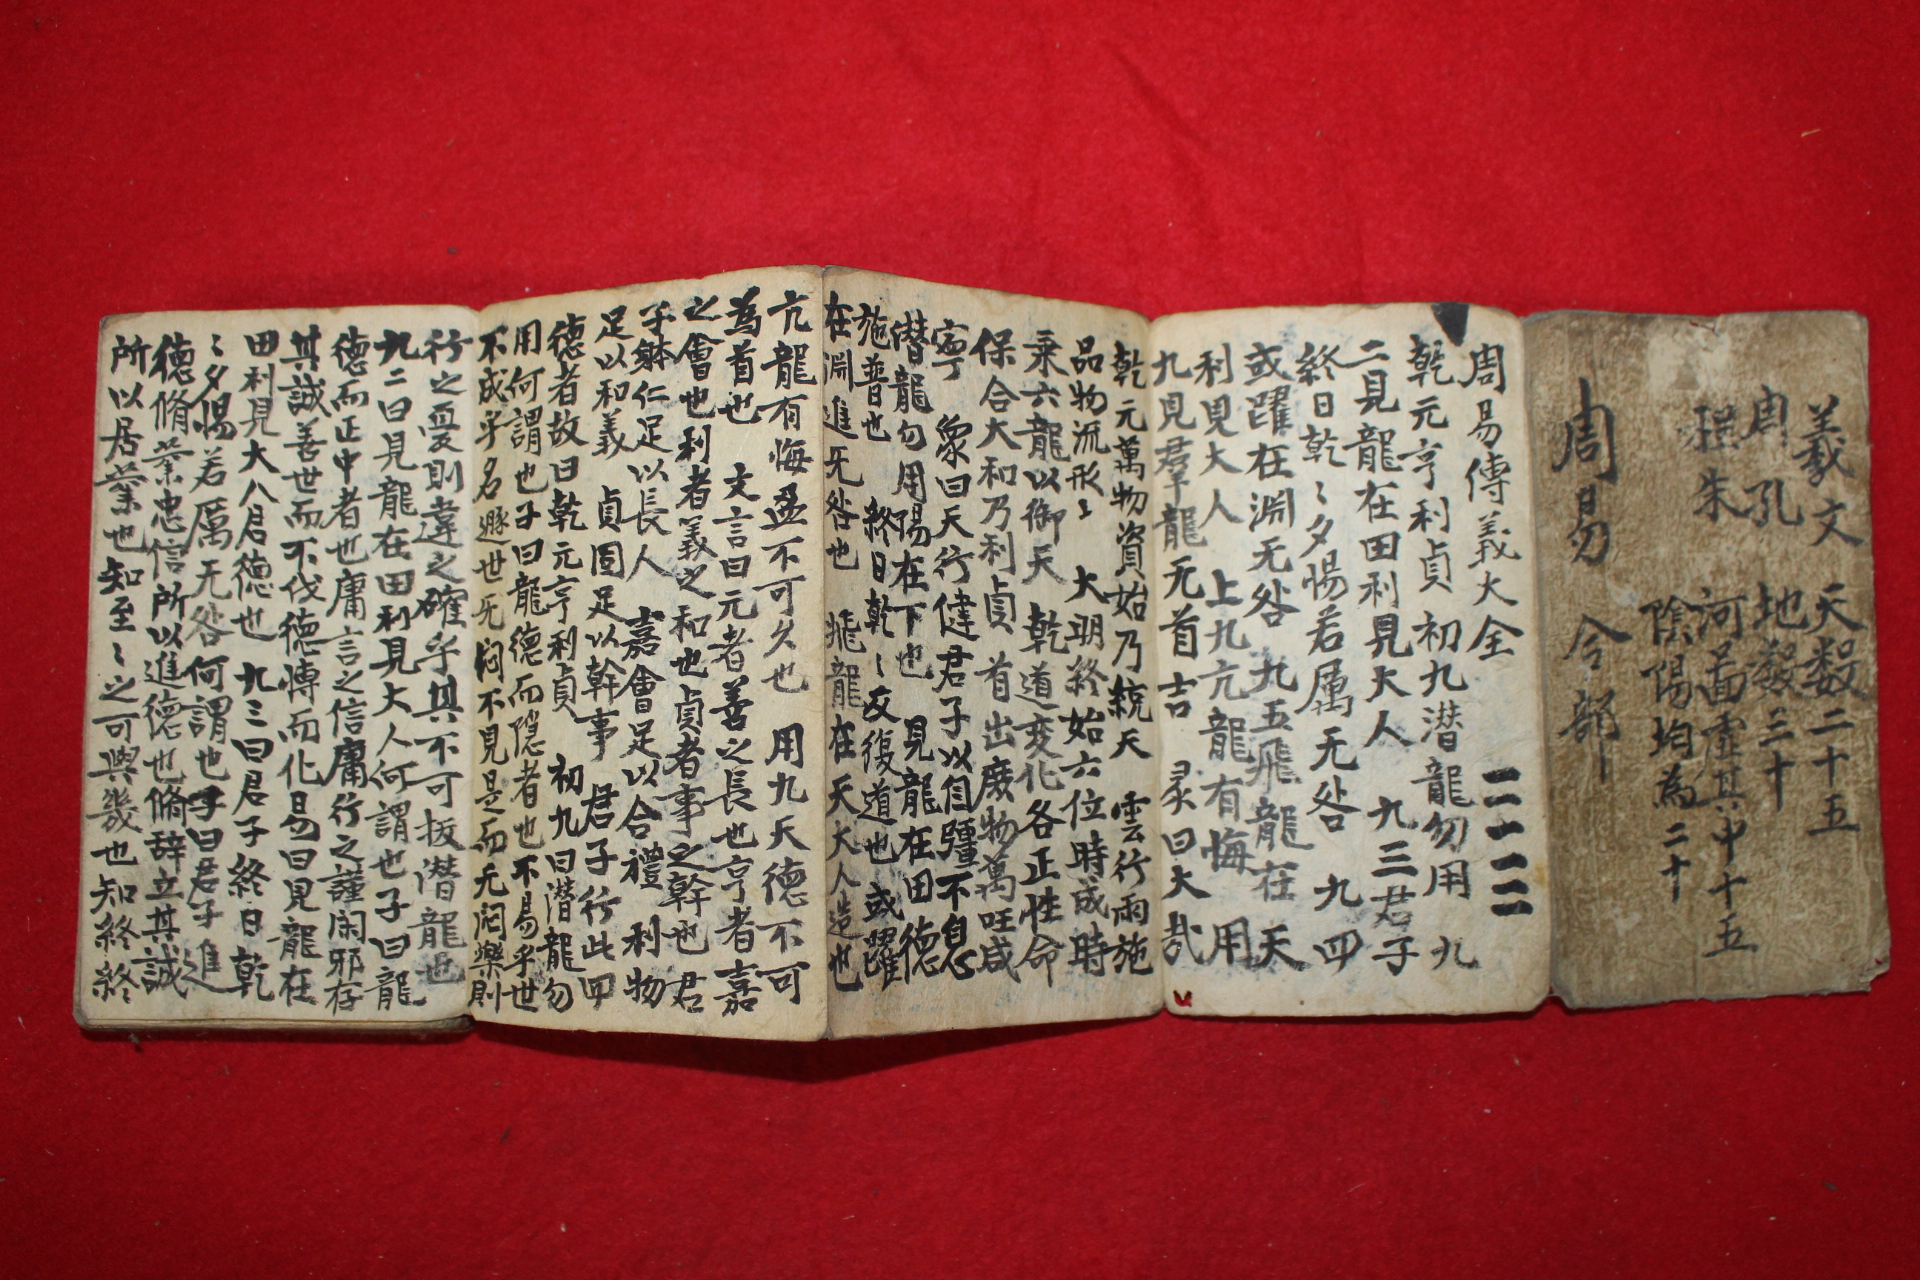 羲文 天数二十五
周孔 地数三十
程朱 河啚虛其中十五
陰陽均為二十
周易 合部
周易傳義大全
乾元亨利貞 初九潜龍勿用 九
二見龍在田利見大人 九三君子
終日乾〻夕惕若厲无咎 九四
或躍在淵无咎 九五飛龍在天
利見大人 上九亢龍有悔 用
九見羣龍无首吉 彖曰大哉
乾元萬物資始乃統天 雲行雨施
品物流形〻 大明終始六位時成時
乘六龍以御天 乾道変化各正性命
保合大和乃利貞 首出庶物萬国咸
寧 象曰天行健君子以自彊不息
潜龍勿用陽在下也 見龍在田德
施普也 終日乾〻反復道也 或躍
在淵進无咎也 飛龍在天大人造也
亢龍有悔盈不可久也 用九天德不可
為首也 文言曰元者善之長也亨者嘉
之會也利者義之和也貞者事之幹也 君
子体仁足以長人 嘉會足以合禮 利物
足以和義 貞固足以幹事 君子行此四
德者故曰乾元亨利貞 初九曰潜龍勿
用何謂也子曰龍德而隠者也不易乎世
不成乎名遯世无悶不見是而无悶樂則
行之憂則違之確乎其不可拔潜龍也
九二曰見龍在田利見大人何謂也子曰龍
德而正中者也庸言之信庸行之謹闲邪存
其誠善世而不伐德博而化易曰見龍在
田利見大人君德也 九三曰君子終日乾
〻夕惕若厲无咎何謂也子曰君子進
德脩業忠信所以進德也脩辞立其誠
所以居業也知至〻之可與幾也知終終